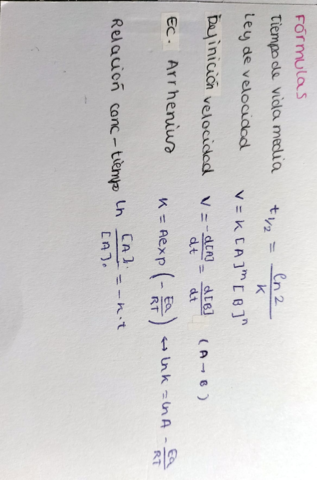 FÓRMULAS
Tiempo de vida media t1/2 = ln2/K
Ley de velocidad V = K [A]^m [B]^n
Definición velocidad V = -d[A]/dt = d[B]/dt (A → B)
EC. Arrhenius K = A exp (-Ea/RT) ↔ ln K = ln A - Ea/RT
Relación conc-tiempo ln [A]/[A] = -K·t